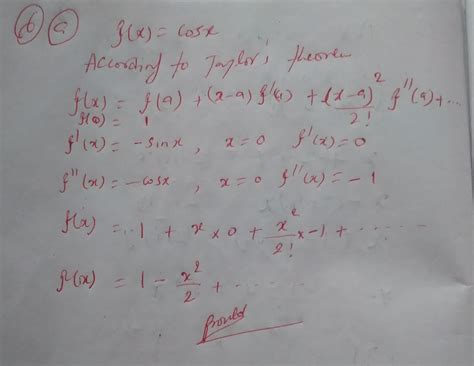 (b) (a) f(x) = cosx
According to Taylor's theorem
f(x) = f(a) + (x-a) f'(a) + (x-a)²/2! f''(a) + ...
f(0) = 1
f'(x) = -sinx , x=0 f'(x)=0
f''(x) = -cosx , x=0 f''(x) = -1
f(x) = 1 + x × 0 + x²/2! x-1 + ......
f(x) = 1 - x²/2 + ......